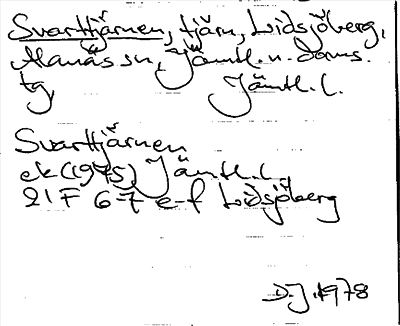 Svarttjärnen, tjärn, Lidsjöberg,
Alanäs sn, Jämtl. n. doms.
tg, Jämtl. l.
Svarttjärnen
ek (1975) Jämtl. l.
21 F 6-7 e-f Lidsjöberg
D.J. 1978